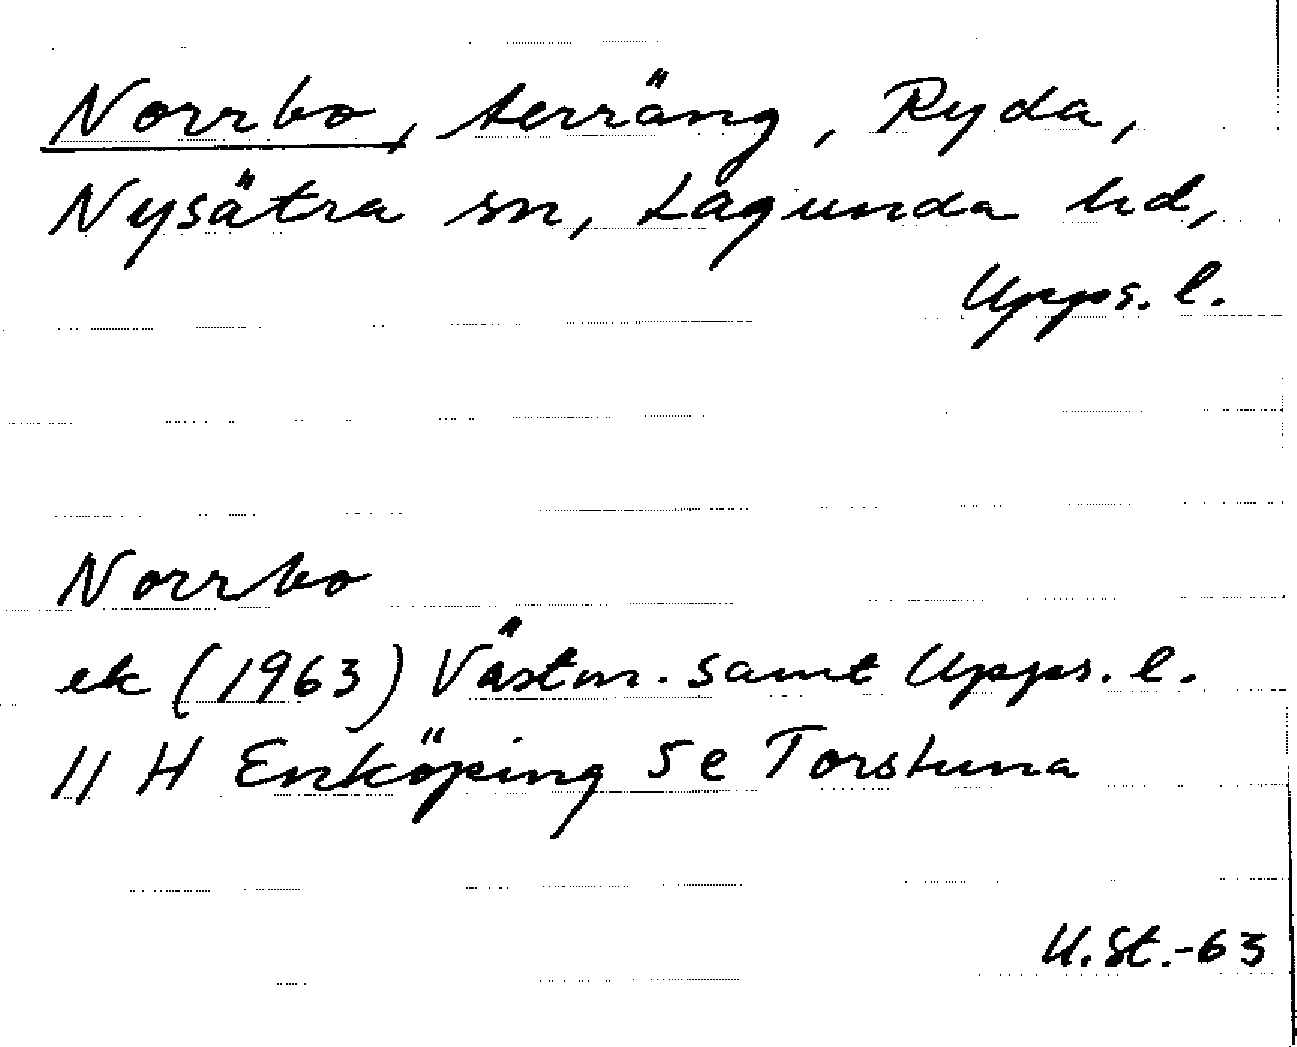 Norrbo, terräng, Ryda,
Nysätra sn, Lagunda hd,
Upps. l.
Norrbo
ek (1963) Västm. samt Upps. l.
11 H Enköping 5e Torstuna
U.St.-63